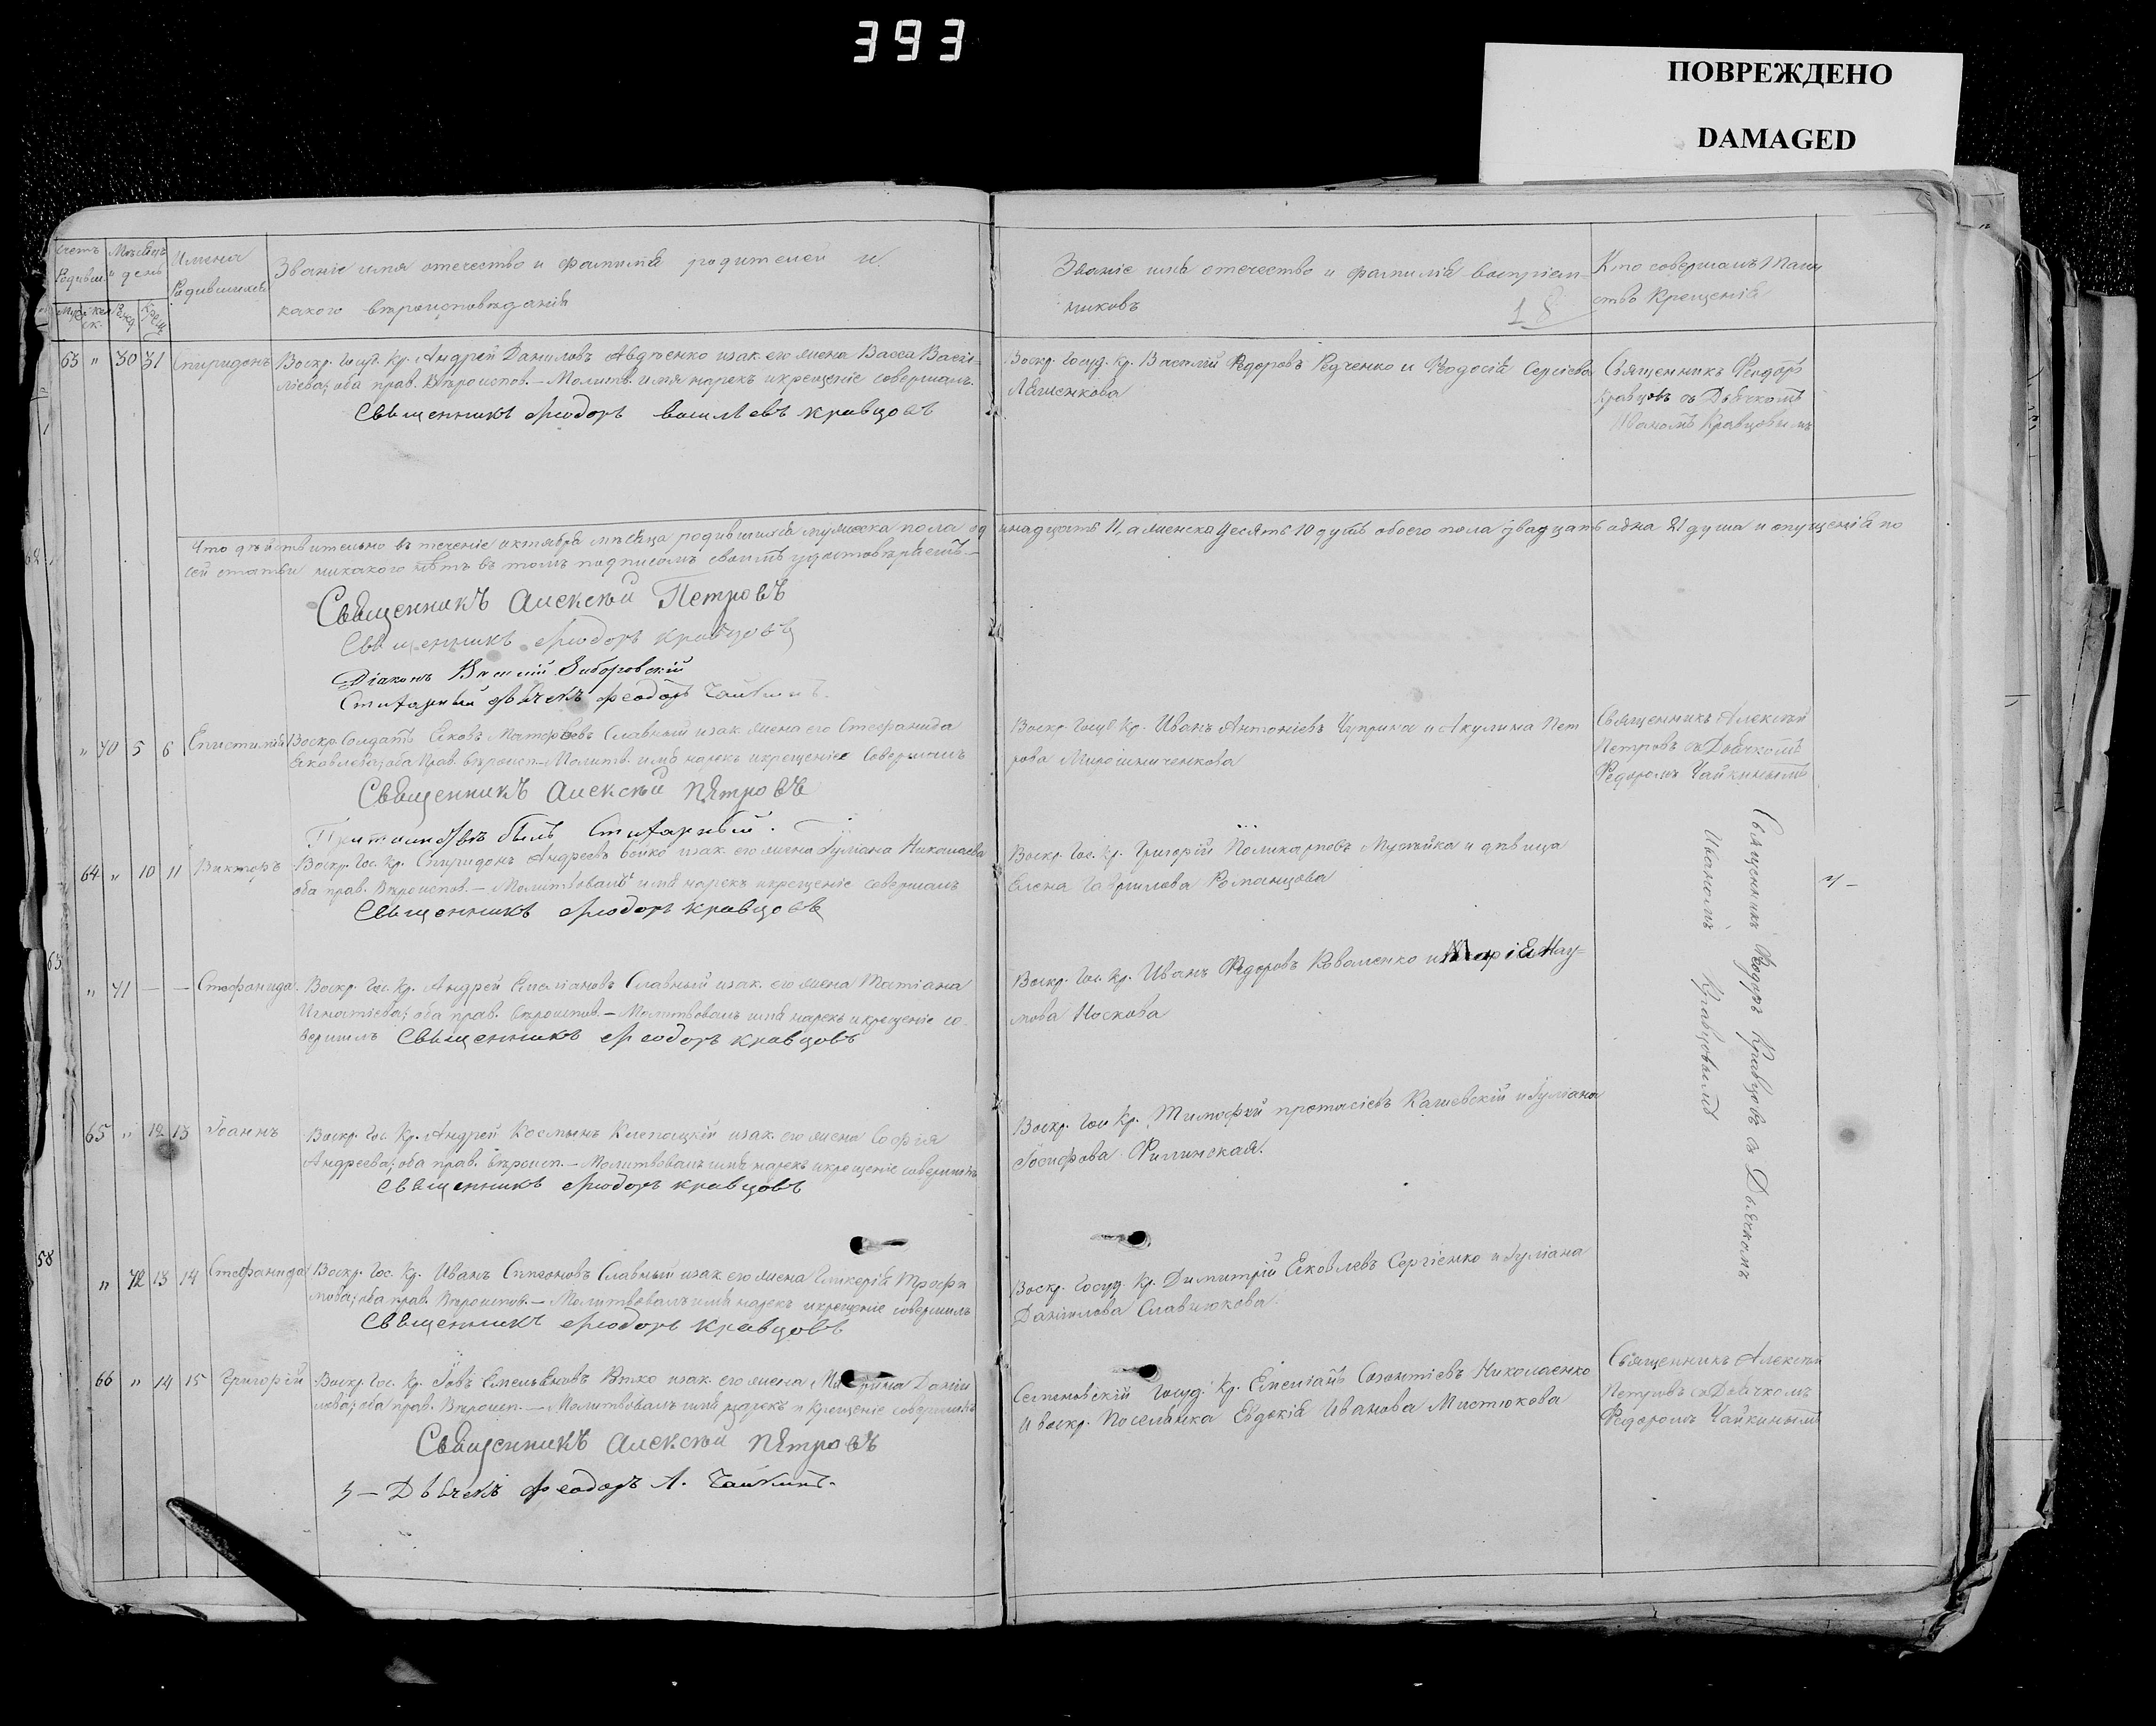 393
ПОВРЕЖДЕНО
DAMAGED
Счетъ Родивш.
Мѣсяцъ и день
Имена Родившихся
Званіе имя отечество и фамилія родителей и
какого вѣроисповѣданія
Званіе имя отечество и фамилія воспріем-
никовъ
18
Кто совершалъ Таин
ство Крещенія
63 " 30 31 Спиридонъ
Воскр. Госуд. Кр. Андрей Даниловъ Авдѣенко и зак. его жена Васса Васи-
лiева; оба прав. Вѣроиспов. – Молитв. имя нарекъ и крещеніе совершалъ
Священникъ Ѳеодоръ Васильевъ Кравцовъ
Воскр. Госуд. Кр. Василій Ѳедоровъ Редченко и Ѳеодосія Сергіева
Ляшенкова
Священникъ Ѳеодоръ
Кравцовъ съ Дьячкомъ
Иваномъ Кравцовымъ
Что дѣйствительно въ теченіе октября мѣсяца родившихся мужеска пола одинадцать 11, а женска десять 10 душъ обоего пола двадцать одна 21 душа и опущенія по
сей статьи никакого нѣтъ въ томъ подписомъ своимъ удостовѣряемъ –
Священникъ Алексѣй Петровъ
Священникъ Ѳеодоръ Кравцовъ
Діаконъ Василій Заборовскій
Стихарный Дьячекъ Ѳеодоръ Чайкинъ.
" 70 5 6 Епистимія
Воскр. Солдатъ Яковъ Матѳѣевъ Славный и зак. жена его Стефанида
Яковлева; оба Прав. вѣроисп. – Молитв. имя нарекъ и крещеніе совершалъ
Священникъ Алексѣй Петровъ
Воскр. Госуд. Кр. Иванъ Антоніевъ Чуприна и Акулина Пет
рова Мирошниченкова
Священникъ Алексѣй
Петровъ съ Дьячкомъ
Ѳедоромъ Чайкинымъ
былъ Стихарный.
64 " 10 11 Викторъ
Воскр. Гос. Кр. Спиридонъ Андреевъ Бойко и зак. его жена Іуліана Николаева
оба прав. Вѣроиспов. – Молитвовалъ имя нарекъ и крещеніе совершалъ
Священникъ Ѳеодоръ Кравцовъ
Воскр. Гос. Кр. Григорій Поликарповъ Мусѣйка и дѣвица
Елена Гаврилова Романцова
Священникъ Ѳеодоръ Кравцовъ съ Дьячкомъ
Иваномъ Кравцовымъ
" 71 — — Стефанида.
Воскр. Гос. Кр. Андрей Емеліановъ Славный и зак. его жена Татіана
Игнатіева; оба прав. вѣроиспов. – Молитвовалъ имя нарекъ и крещеніе со-
вершилъ Священникъ Ѳеодоръ Кравцовъ
Воскр. Гос. Кр. Иванъ Ѳедоровъ Коваленко и Марія Нау-
мова Носкова
65 " 12 13 Іоаннъ
Воскр. Гос. Кр. Андрей Космынъ и зак. его жена Софія
Андреева; оба прав. вѣроисп. – Молитвовалъ имя нарекъ и крещеніе совершилъ
Священникъ Ѳеодоръ Кравцовъ
Воскр. Гос. Кр. Тимофей Протасіевъ Кашевскій и Іуліана
Іосифова Филинская.
58
" 72 13 14 Стефанида
Воскр. Гос. Кр. Иванъ Славный и зак. его жена Гликерія Трофи
мова; оба прав. Вѣроиспов. – Молитвовалъ имя нарекъ и крещеніе совершилъ
Священникъ Ѳеодоръ Кравцовъ
Воскр. Госуд. Кр. Димитрій Яковлевъ Сергіенко и Іуліана
Даніилова Славнюкова.
66 " 14 15 Григорій
Воскр. Гос. Кр. Іовъ Емельяновъ и зак. его жена Даніи
лова; оба прав. Вѣроисп. – Молитвовалъ имя нарекъ и Крещеніе совершилъ
Священникъ Алексѣй Петровъ
Дьячекъ Ѳеодоръ А. Чайкинъ.
Семеновскій Госуд. Кр. Емеліанъ Созонтіевъ Николаенко
и воскр. Поселянка Евдокія Иванова Мистюкова
Священникъ Алексѣй
Петровъ съ Дьячкомъ
Ѳедоромъ Чайкинымъ